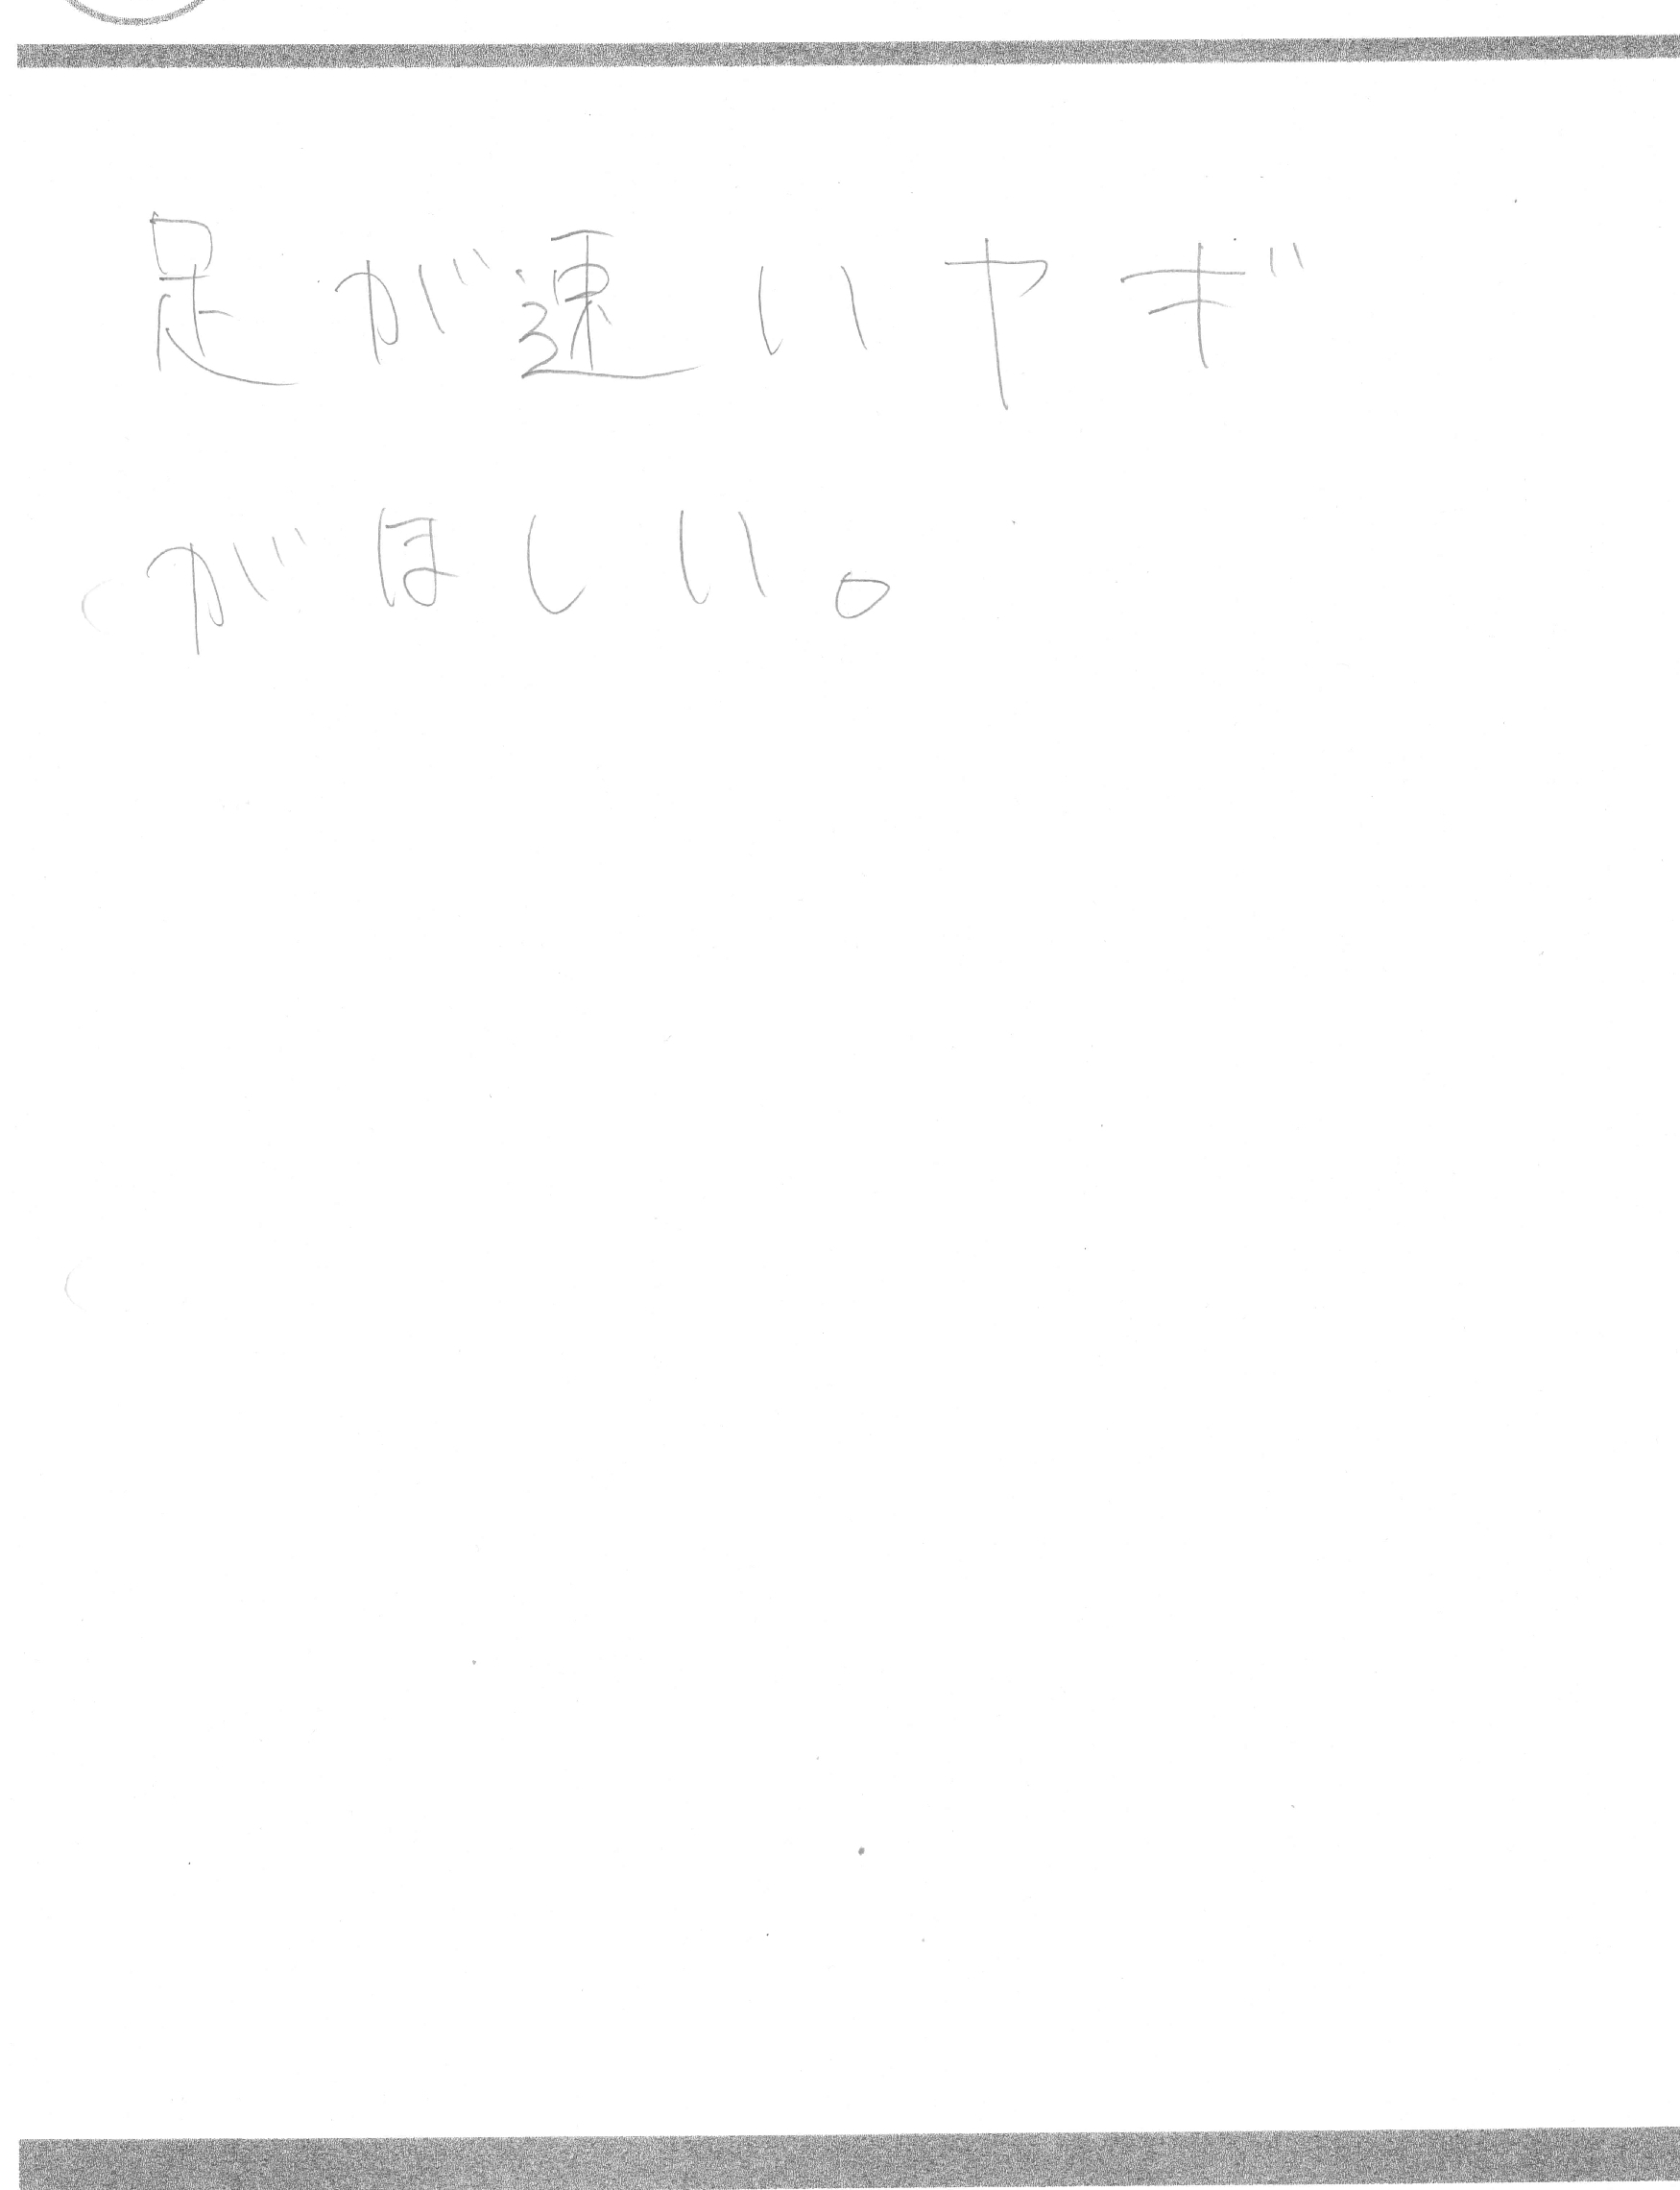 足が速いヤギ
がほしい。